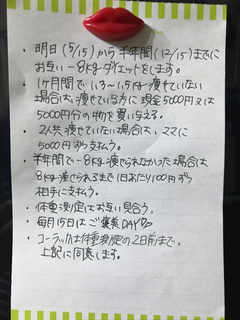 ・明日(5/15)から半年間(12/15)までに
お互い-8kgダイエットをします。
・1ヶ月間で1.3〜1.5kg痩せていない
場合は、痩せている方に現金5000円又は
5000円分の物を買い与える。
・2人共痩せていない場合は、ママに
5000円ずつ支払う。
・半年間で-8kg痩せられなかった場合は
8kg痩せられるまで1日あたり100円ずつ
相手に支払う。
・体重測定はお互い見合う。
・毎月15日はご褒美DAY♡
・コーラックは体重測定の2日前まで。
上記に同意します。